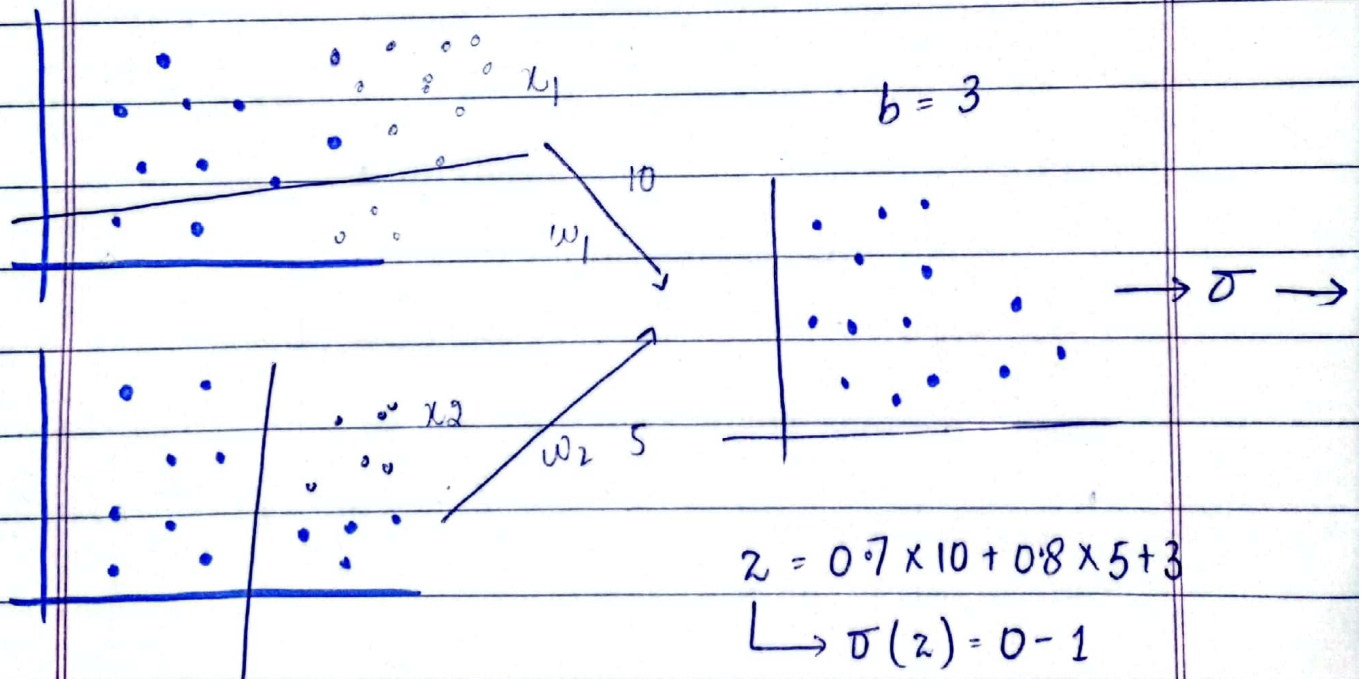 x1
b = 3
10
w1
→ σ →
x2
w2 5
z = 0.7 × 10 + 0.8 × 5 + 3
↳ σ(z) = 0 - 1